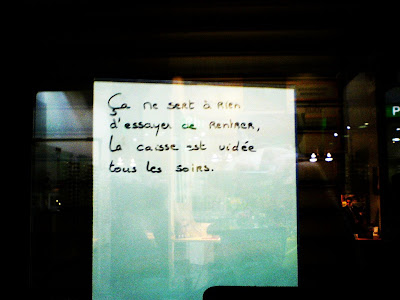 Ça ne sert à rien
d'essayer de rentrer,
la caisse est vidée
tous les soirs.
P